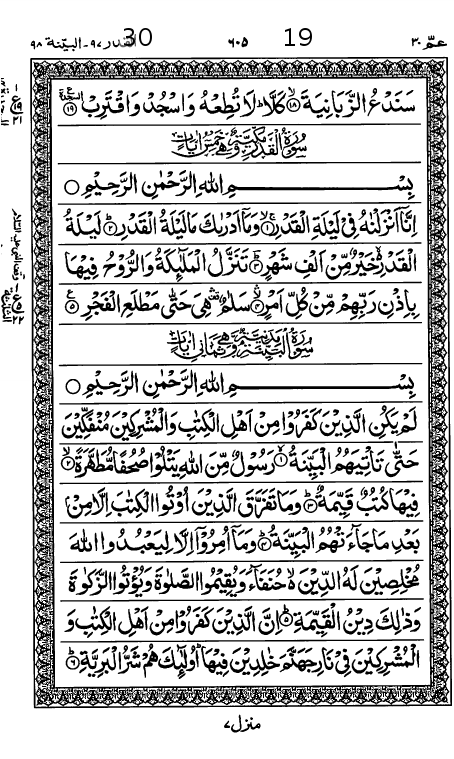 عمّ ٣٠ 19 ٦٠٥ 30 القدر ٩٧-البيّنة ٩٨
سَنَدْعُ الزَّبَانِيَةَ ﴿١٨﴾ كَلَّا ؕ لَا تُطِعْهُ وَاسْجُدْ وَاقْتَرِبْ ﴿١٩﴾
سُوْرَةُ الْقَدْرِ مَكِّيَّةٌ وَّهِيَ خَمْسُ اٰيَاتٍ
بِسْمِ اللهِ الرَّحْمٰنِ الرَّحِيْمِ
اِنَّاۤ اَنْزَلْنٰهُ فِيْ لَيْلَةِ الْقَدْرِ ﴿١﴾ وَمَاۤ اَدْرٰىكَ مَا لَيْلَةُ الْقَدْرِ ﴿٢﴾ لَيْلَةُ
الْقَدْرِ ۙ خَيْرٌ مِّنْ اَلْفِ شَهْرٍ ﴿٣﴾ تَنَزَّلُ الْمَلٰٓئِكَةُ وَالرُّوْحُ فِيْهَا
بِاِذْنِ رَبِّهِمْ ۚ مِنْ كُلِّ اَمْرٍ ﴿٤﴾ سَلٰمٌ ۛ هِيَ حَتّٰى مَطْلَعِ الْفَجْرِ ﴿٥﴾
سُوْرَةُ الْبَيِّنَةِ مَدَنِيَّةٌ وَّهِيَ ثَمَانِيْ اٰيَاتٍ
بِسْمِ اللهِ الرَّحْمٰنِ الرَّحِيْمِ
لَمْ يَكُنِ الَّذِيْنَ كَفَرُوْا مِنْ اَهْلِ الْكِتٰبِ وَالْمُشْرِكِيْنَ مُنْفَكِّيْنَ
حَتّٰى تَاْتِيَهُمُ الْبَيِّنَةُ ﴿١﴾ رَسُوْلٌ مِّنَ اللهِ يَتْلُوْا صُحُفًا مُّطَهَّرَةً ﴿٢﴾
فِيْهَا كُتُبٌ قَيِّمَةٌ ﴿٣﴾ وَمَا تَفَرَّقَ الَّذِيْنَ اُوْتُوا الْكِتٰبَ اِلَّا مِنْۢ
بَعْدِ مَا جَآءَتْهُمُ الْبَيِّنَةُ ﴿٤﴾ وَمَاۤ اُمِرُوْۤا اِلَّا لِيَعْبُدُوا اللهَ
مُخْلِصِيْنَ لَهُ الدِّيْنَ ۙ حُنَفَآءَ وَيُقِيْمُوا الصَّلٰوةَ وَيُؤْتُوا الزَّكٰوةَ
وَذٰلِكَ دِيْنُ الْقَيِّمَةِ ﴿٥﴾ اِنَّ الَّذِيْنَ كَفَرُوْا مِنْ اَهْلِ الْكِتٰبِ وَ
الْمُشْرِكِيْنَ فِيْ نَارِ جَهَنَّمَ خٰلِدِيْنَ فِيْهَا ؕ اُولٰٓئِكَ هُمْ شَرُّ الْبَرِيَّةِ ﴿٦﴾
منزل ٧